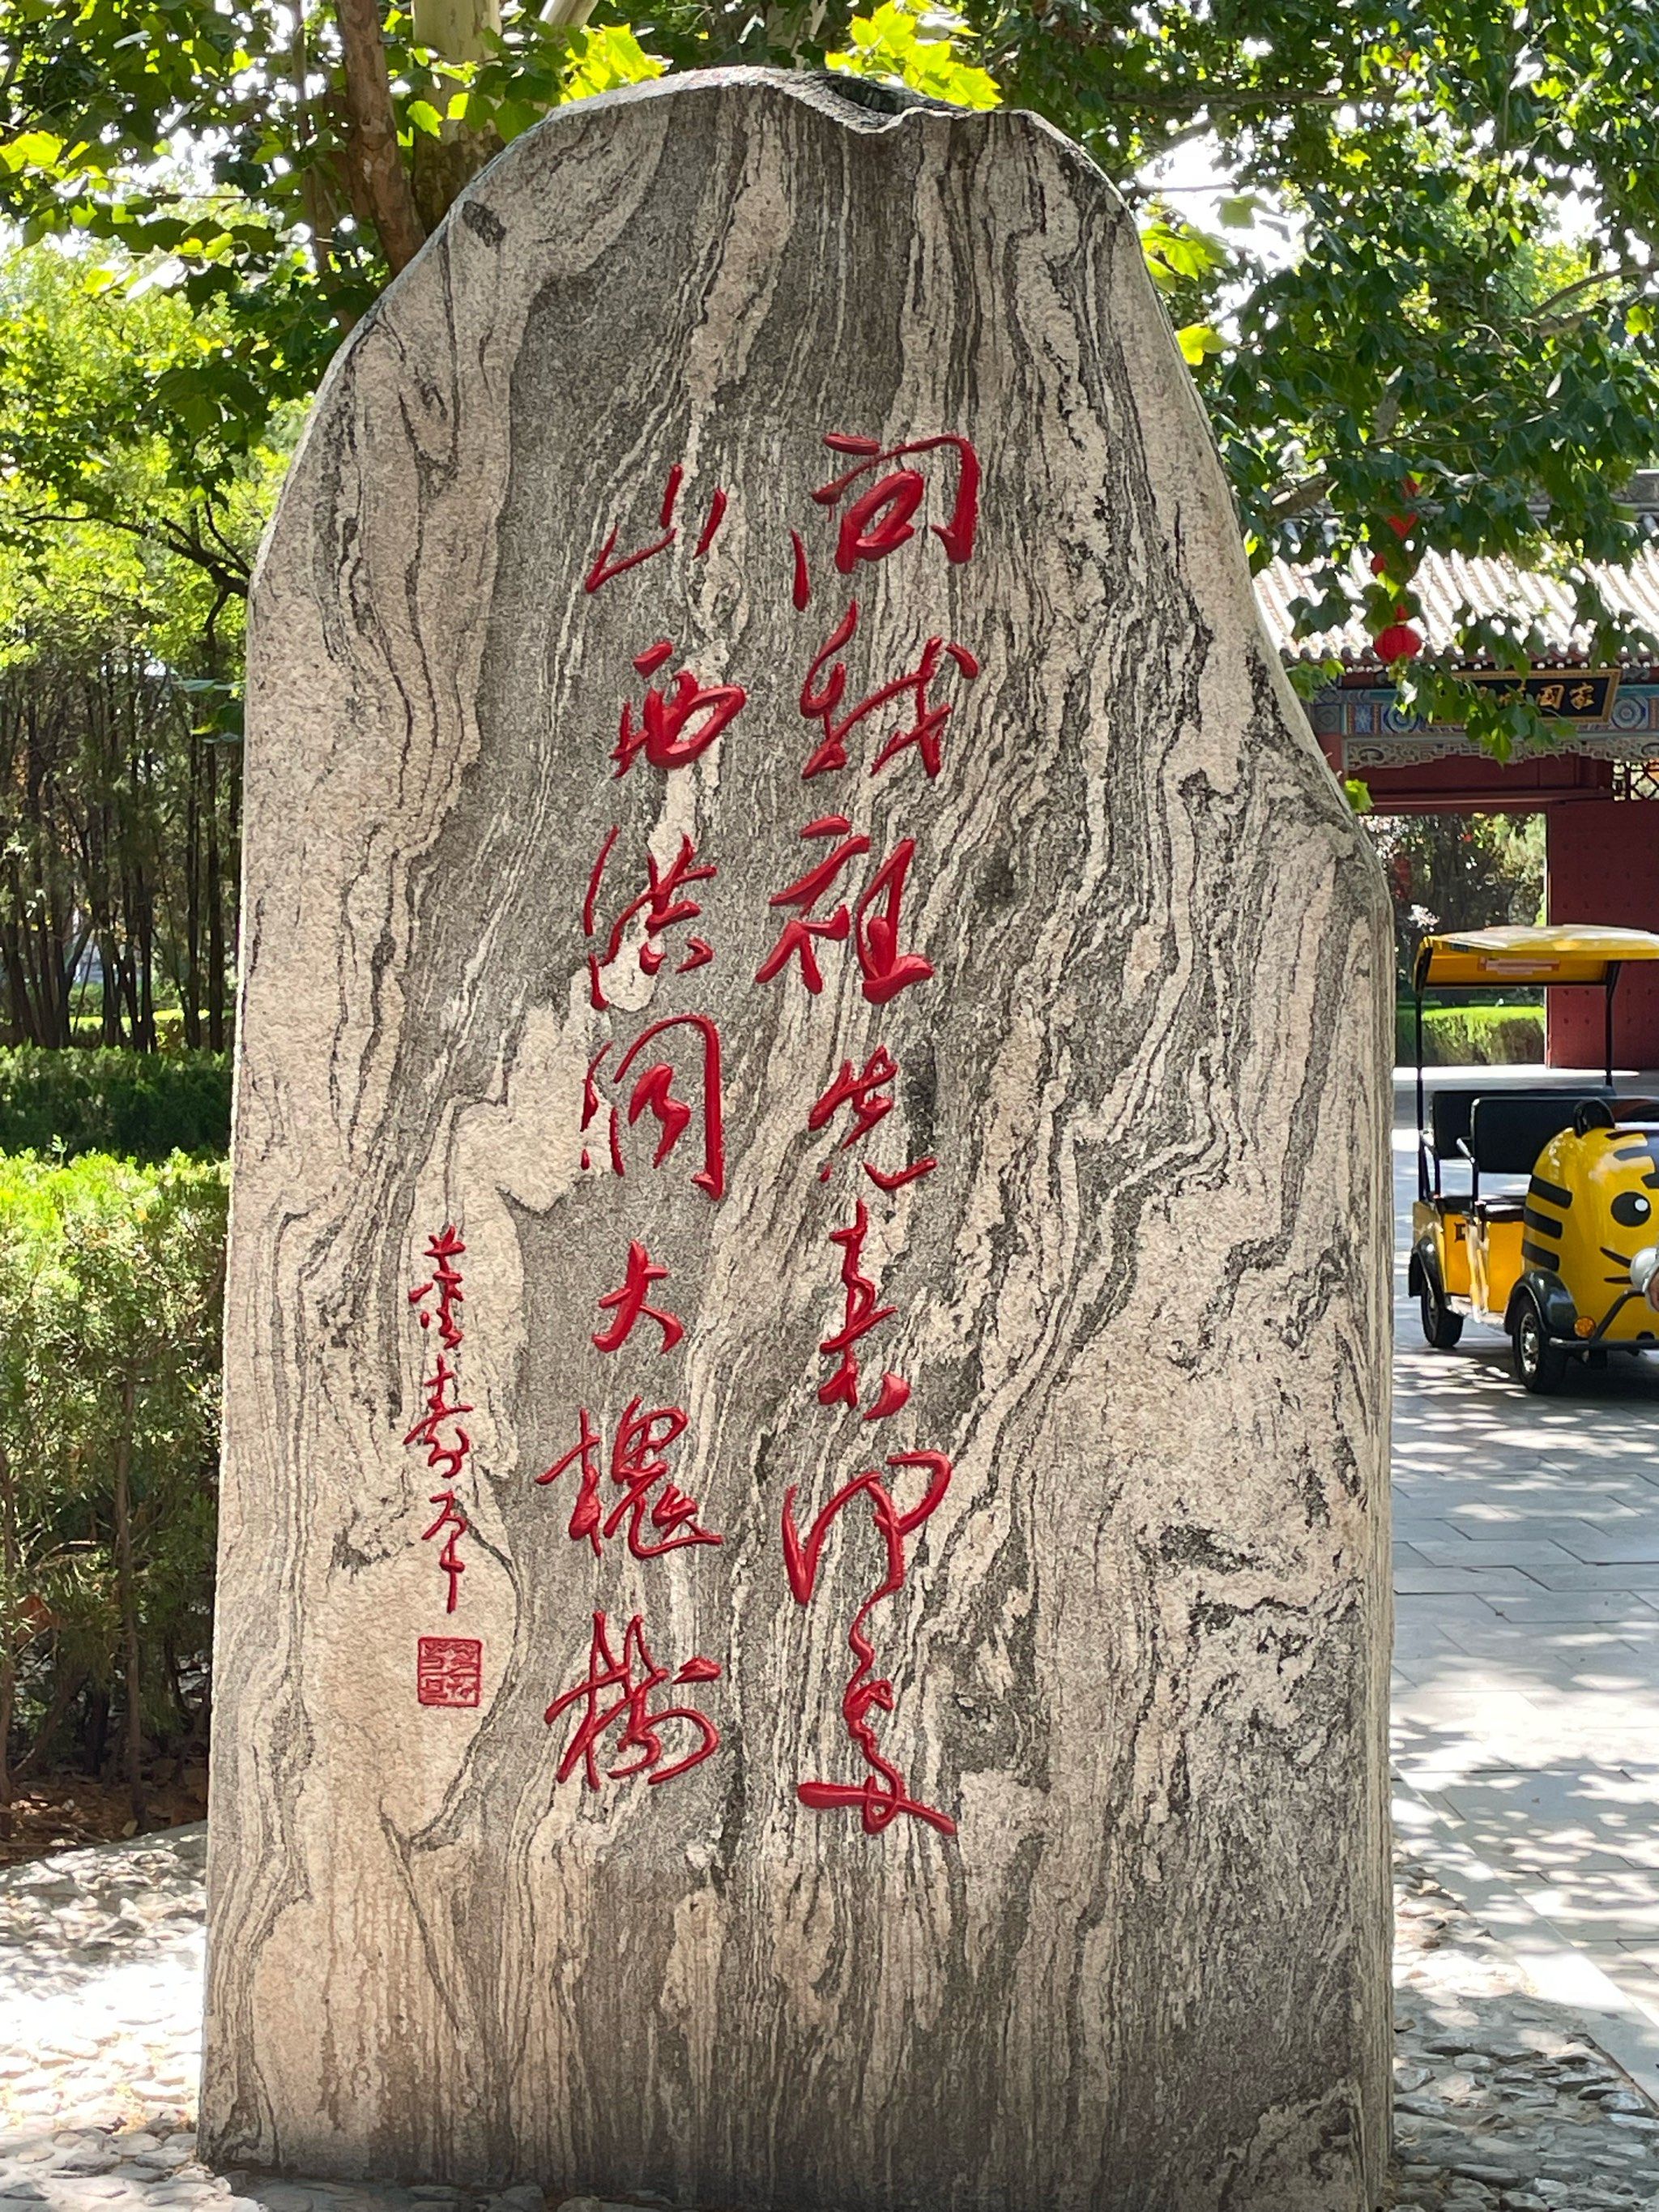 问我祖先来何处
山西洪洞大槐树
董寿平